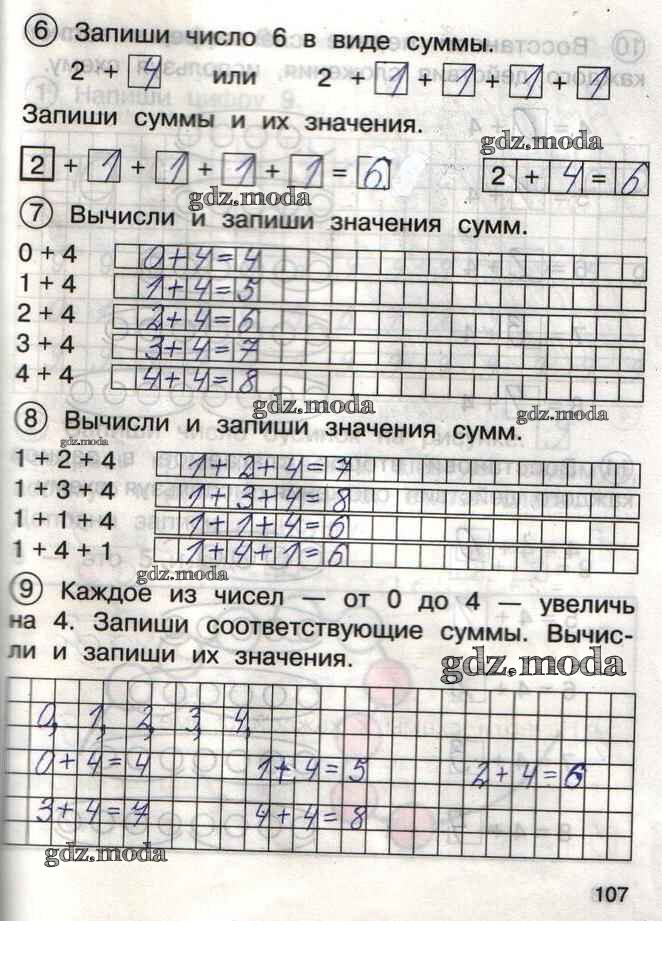 6 Запиши число 6 в виде суммы.
2 + 4 или 2 + 1 + 1 + 1 + 1
Запиши суммы и их значения.
gdz.moda
2 + 1 + 1 + 1 + 1 = 6 2 + 4 = 6
gdz.moda
7 Вычисли и запиши значения сумм.
0 + 4 0+4=4
1 + 4 1+4=5
2 + 4 2+4=6
3 + 4 3+4=7
4 + 4 4+4=8
gdz.moda gdz.moda
8 Вычисли и запиши значения сумм.
gdz.moda
1 + 2 + 4 1+2+4=7
1 + 3 + 4 1+3+4=8
1 + 1 + 4 1+1+4=6
1 + 4 + 1 1+4+1=6
gdz.moda
9 Каждое из чисел — от 0 до 4 — увеличь
на 4. Запиши соответствующие суммы. Вычис-
ли и запиши их значения.
gdz.moda
0, 1, 2, 3, 4,
0+4=4 1+4=5 2+4=6
3+4=7 4+4=8
gdz.moda
107